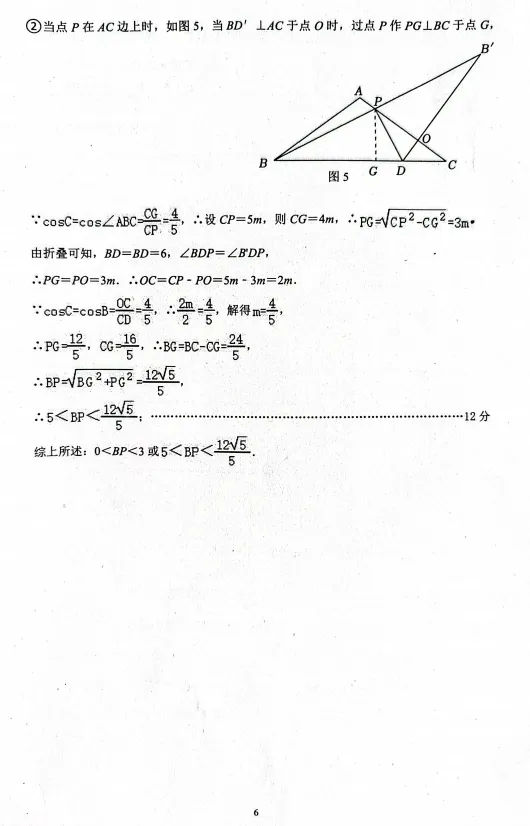 ②当点 P 在 AC 边上时，如图 5，当 BD′ ⊥AC 于点 O 时，过点 P 作 PG⊥BC 于点 G，
B′
A
P
O
B
G
D
C
图 5
∵cosC=cos∠ABC=CG/CP=4/5，∴设 CP=5m，则 CG=4m，∴PG=√(CP²-CG²)=3m.
由折叠可知，BD=BD=6，∠BDP=∠B′DP，
∴PG=PO=3m．∴OC=CP﹣PO=5m﹣3m=2m．
∵cosC=cosB=OC/CD=4/5，∴2m/2=4/5，解得m=4/5，
∴PG=12/5，CG=16/5，∴BG=BC-CG=24/5，
∴BP=√(BG²+PG²)=12√5/5，
∴5＜BP＜12√5/5；…………………………………………………………12 分
综上所述：0<BP<3 或5＜BP＜12√5/5．
6